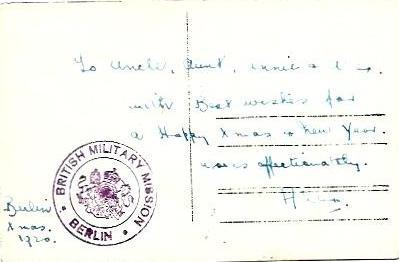 To Uncle, Aunt, 
with Best wishes for
a Happy Xmas & New Year.
yours affectionately.
BRITISH MILITARY MISSION
• BERLIN •
Berlin
Xmas.
1920.